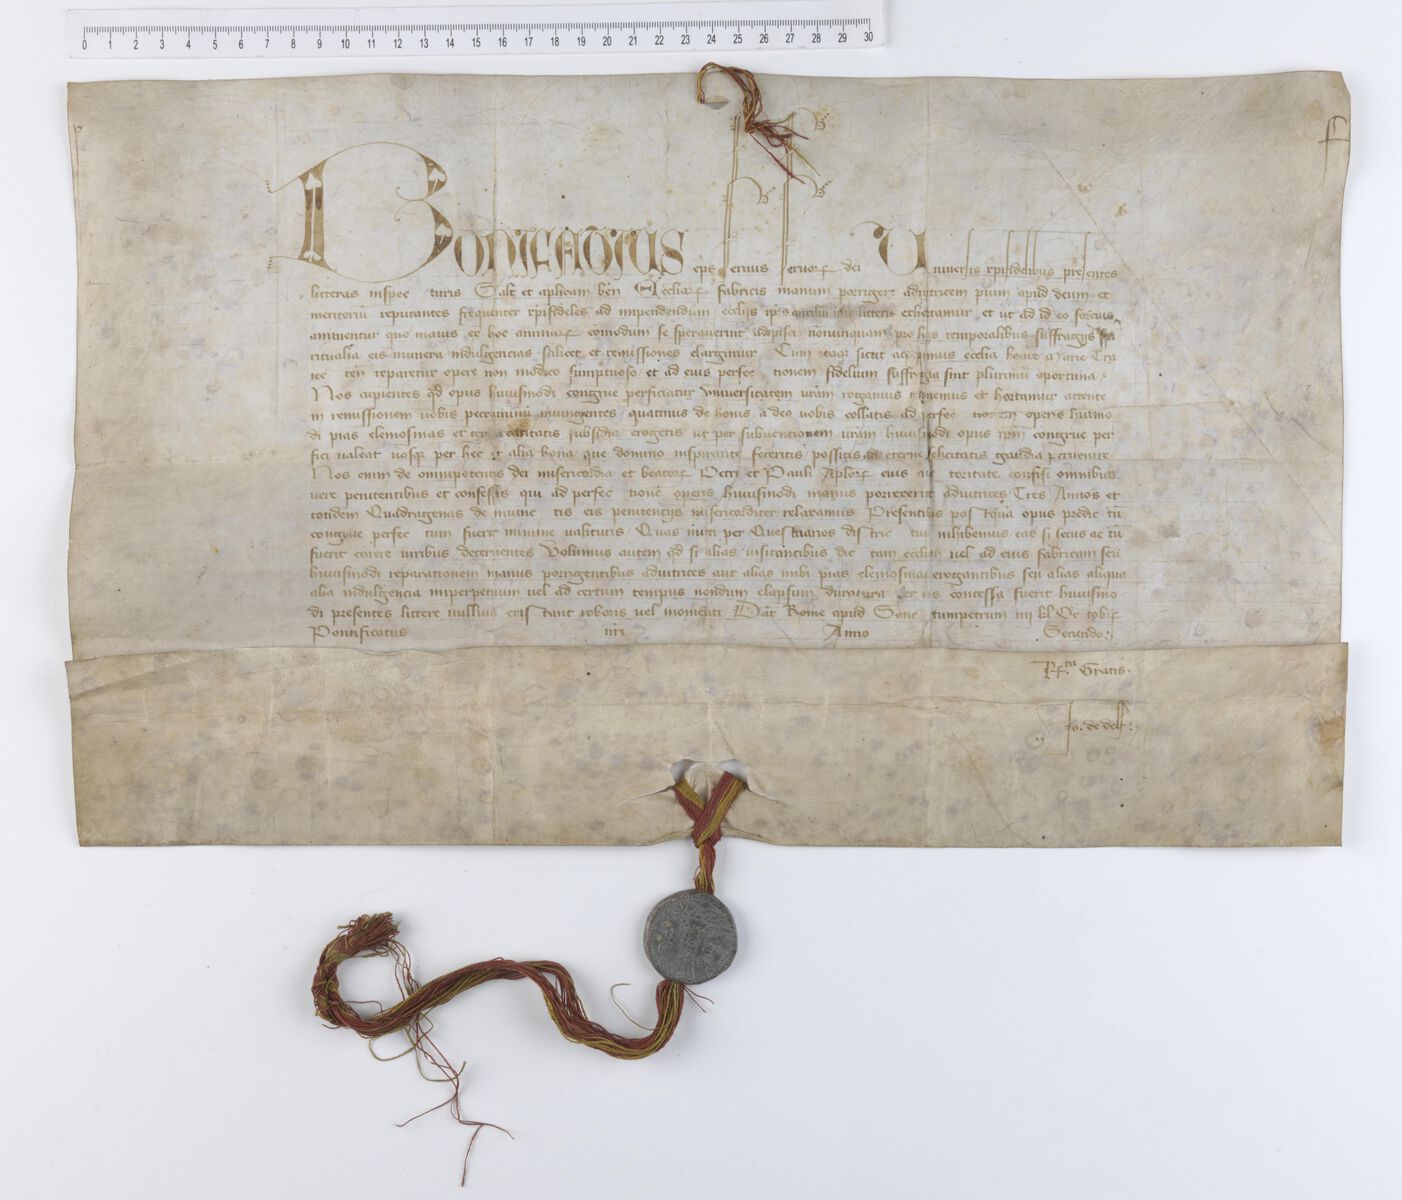 0 1 2 3 4 5 6 7 8 9 10 11 12 13 14 15 16 17 18 19 20 21 22 23 24 25 26 27 28 29 30
Bonifacius eps seruus seruoꝝ dei Uniuersis xpifidelibus presentes
litteras inspecturis Salt et aplicam ben Ecclaꝝ fabricis manum porrigere adiutricem pium apud deum et
meritoriu reputantes frequenter xpifideles ad impendendum ecclijs ipis auxiliu nris litteris exhortamur et ut ad id eo forcius
animentur quo maius ex hoc animaꝝ comodum se sperauerint adipisci nonnunquam pro hijs temporalibus suffragijs spi
ritualia eis munera indulgencias scilicet et remissiones elargimur Cum itaqꝫ sicut accepimus ecclia beate Marie
reparetur opere non modico sumptuoso et ad eius perfectionem fidelium suffragia sint plurimu oportuna
Nos cupientes qd opus huiusmodi congrue perficiatur vniuersitatem uram rogamus monemus et hortamur attente
in remissionem uobis peccaminu iniungentes quatinus de bonis a deo uobis collatis ad perfectionem operis huiusmo
di pias elemosinas et grata caritatis subsidia erogetis ut per subuentionem uram huiusmodi opus ipm congrue per
fici ualeat uosqꝫ per hec et alia bona que domino inspirante feceritis possitis ad eterne felicitatis gaudia peruenire
Nos enim de omnipotentis dei misericordia et beatoꝝ Petri et Pauli Aploꝝ eius auctoritate confisi omnibus
uere penitentibus et confessis qui ad perfectione operis huiusmodi manus porrexerint adiutrices Tres Annos et
totidem Quadragenas de iniunctis eis penitentijs misericorditer relaxamus Presentibus postqua opus predictu
congrue perfectum fuerit minime ualituris Quas mitti per Questuarios districtius inhibemus eas si secus actu
fuerit carere uiribus decernentes Volumus autem qd si alias uisitantibus dictam eccliam uel ad eius fabricam seu
huiusmodi reparationem manus porrigentibus adiutrices aut alias inibi pias elemosinas erogantibus seu alias aliqua
alia indulgencia imperpetuum uel ad certum tempus nondum elapsum duratura per nos concessa fuerit huiusmo
di presentes littere nullius existant roboris uel momenti Dat Rome apud Sanctumpetrum iiij kl Octobꝝ
Pontificatus nri Anno Secundo
Rta Gratis
Jo. de